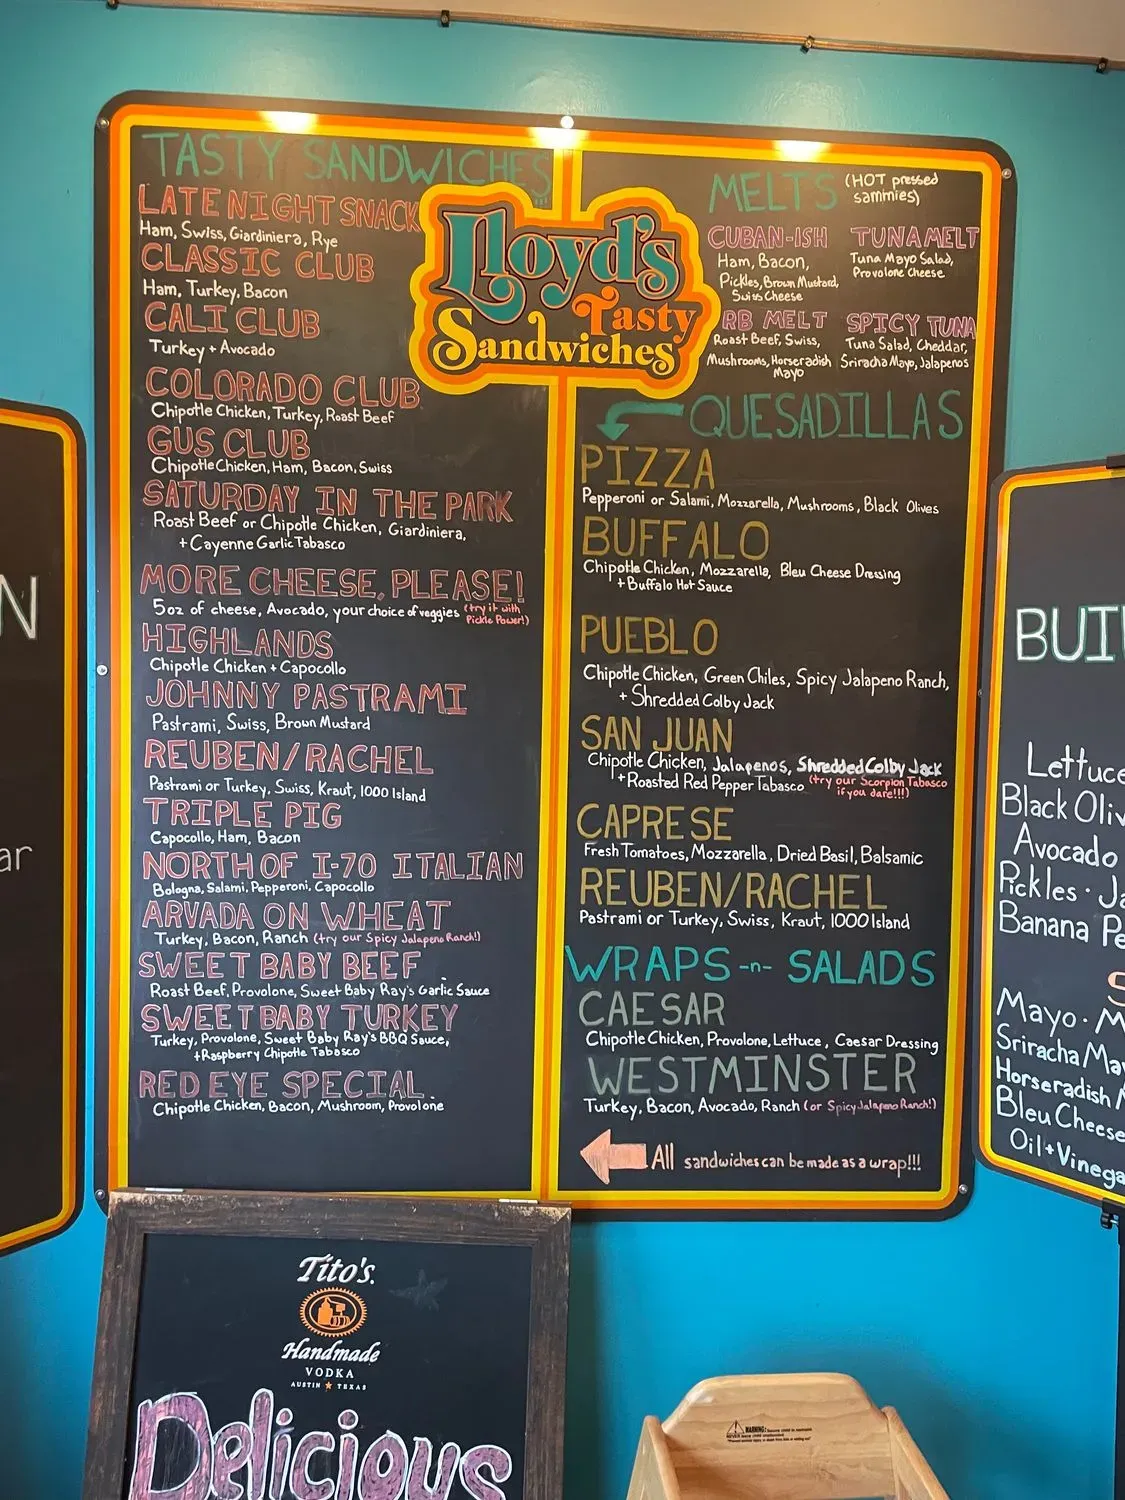 TASTY SANDWICHES
LATE NIGHT SNACK
Ham, Swiss, Giardiniera, Rye
CLASSIC CLUB
Ham, Turkey, Bacon
CALI CLUB
Turkey + Avocado
COLORADO CLUB
Chipotle Chicken, Turkey, Roast Beef
GUS CLUB
Chipotle Chicken, Ham, Bacon, Swiss
SATURDAY IN THE PARK
Roast Beef or Chipotle Chicken, Giardiniera,
+ Cayenne Garlic Tabasco
MORE CHEESE, PLEASE!
5oz of cheese, Avocado, your choice of veggies (try it with
Pickle Power!)
HIGHLANDS
Chipotle Chicken + Capocollo
JOHNNY PASTRAMI
Pastrami, Swiss, Brown Mustard
REUBEN/RACHEL
Pastrami or Turkey, Swiss, Kraut, 1000 Island
TRIPLE PIG
Capocollo, Ham, Bacon
NORTH OF I-70 ITALIAN
Bologna, Salami, Pepperoni, Capocollo
ARVADA ON WHEAT
Turkey, Bacon, Ranch (try our Spicy Jalapeno Ranch!)
SWEET BABY BEEF
Roast Beef, Provolone, Sweet Baby Ray's Garlic Sauce
SWEET BABY TURKEY
Turkey, Provolone, Sweet Baby Ray's BBQ Sauce,
+Raspberry Chipotle Tabasco
RED EYE SPECIAL
Chipotle Chicken, Bacon, Mushroom, Provolone
Lloyd's
Tasty
Sandwiches
MELTS (HOT pressed
sammies)
CUBAN-ISH
Ham, Bacon,
Pickles, Brown Mustard,
Swiss Cheese
TUNA MELT
Tuna Mayo Salad,
Provolone Cheese
RB MELT
Roast Beef, Swiss,
Mushrooms, Horseradish
Mayo
SPICY TUNA
Tuna Salad, Cheddar,
Sriracha Mayo, Jalapenos
QUESADILLAS
PIZZA
Pepperoni or Salami, Mozzarella, Mushrooms, Black Olives
BUFFALO
Chipotle Chicken, Mozzarella, Bleu Cheese Dressing
+ Buffalo Hot Sauce
PUEBLO
Chipotle Chicken, Green Chiles, Spicy Jalapeno Ranch,
+ Shredded Colby Jack
SAN JUAN
Chipotle Chicken, Jalapenos, Shredded Colby Jack
+Roasted Red Pepper Tabasco (try our Scorpion Tabasco
if you dare!!!)
CAPRESE
Fresh Tomatoes, Mozzarella, Dried Basil, Balsamic
REUBEN/RACHEL
Pastrami or Turkey, Swiss, Kraut, 1000 Island
WRAPS -n- SALADS
CAESAR
Chipotle Chicken, Provolone, Lettuce, Caesar Dressing
WESTMINSTER
Turkey, Bacon, Avocado, Ranch (or Spicy Jalapeno Ranch!)
All sandwiches can be made as a wrap!!!
N
ar
BUI
Lettuce
Black Oliv
Avocado
Pickles · Ja
Banana Pe
S
Mayo · M
Sriracha May
Horseradish M
Bleu Cheese
Oil + Vinega
Tito's
Handmade
VODKA
AUSTIN TEXAS
Delicious
WARNING: